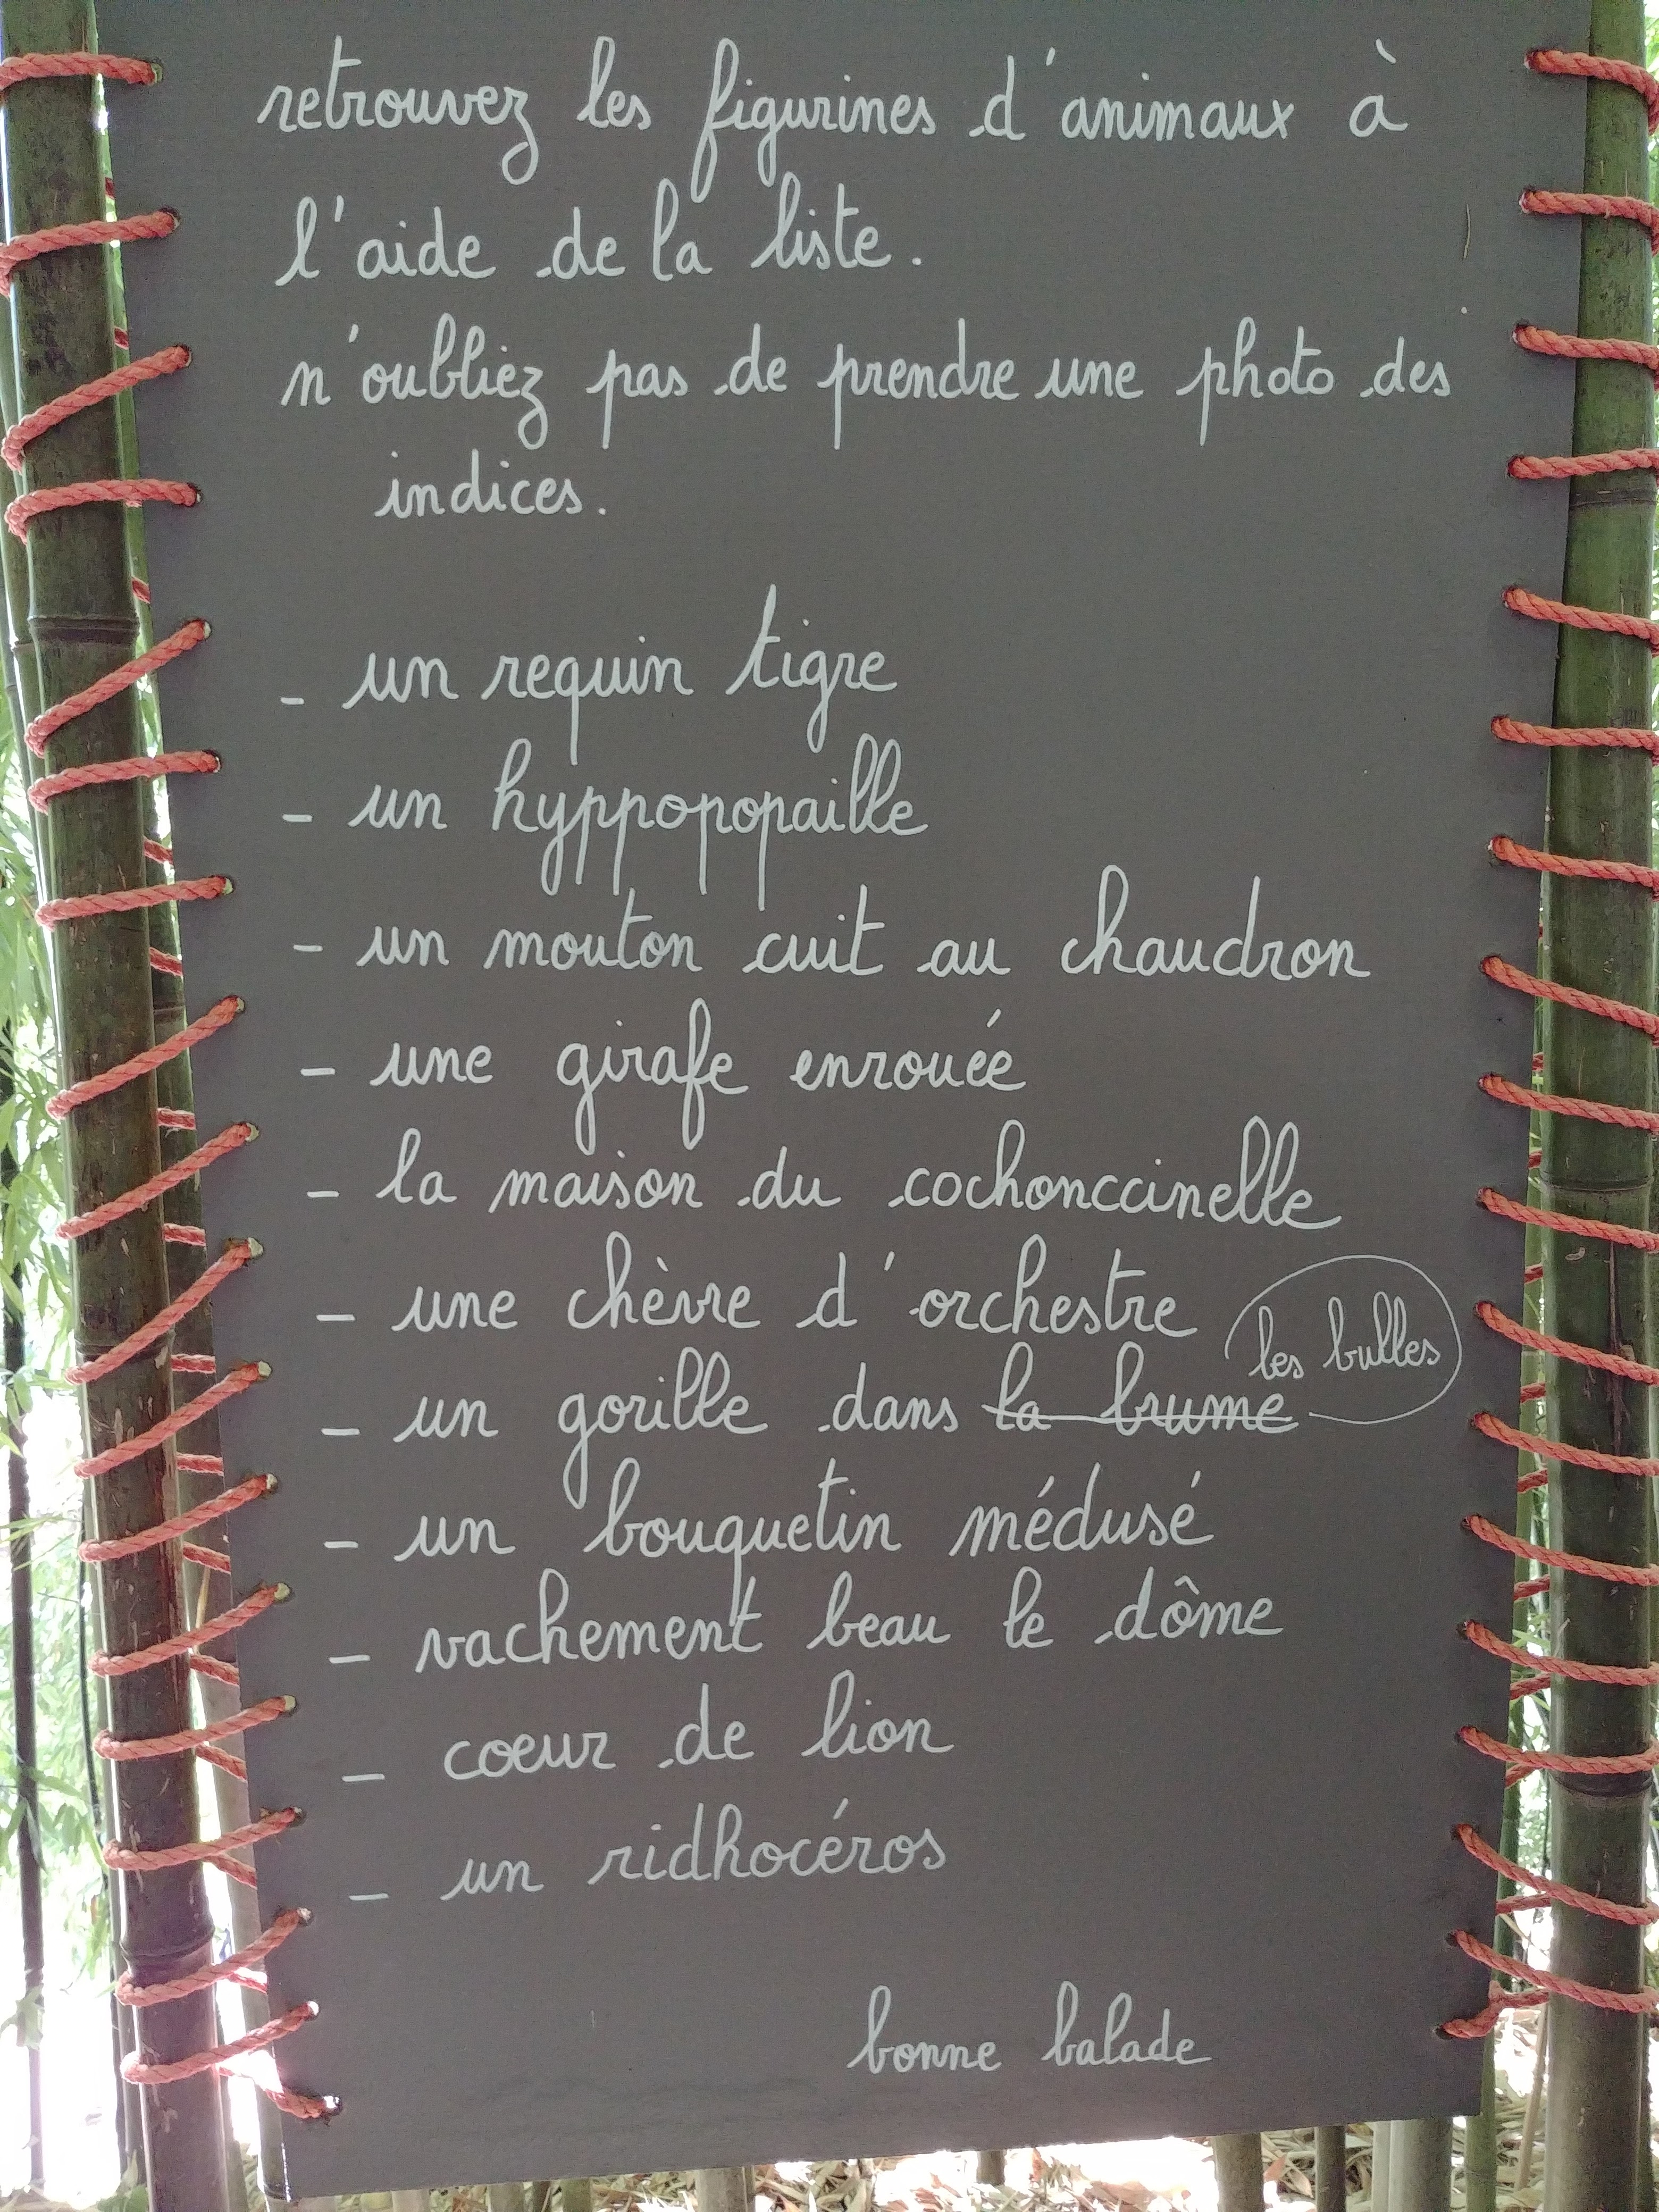 retrouvez les figurines d'animaux à
l'aide de la liste.
n'oubliez pas de prendre une photo des
indices.
- un requin tigre
- un hyppopopaille
- un mouton cuit au chaudron
- une girafe enrouée
- la maison du cochonccinelle
- une chèvre d'orchestre
les bulles
- un gorille dans la brume
- un bouquetin médusé
- vachement beau le dôme
- coeur de lion
- un ridhocéros
bonne balade